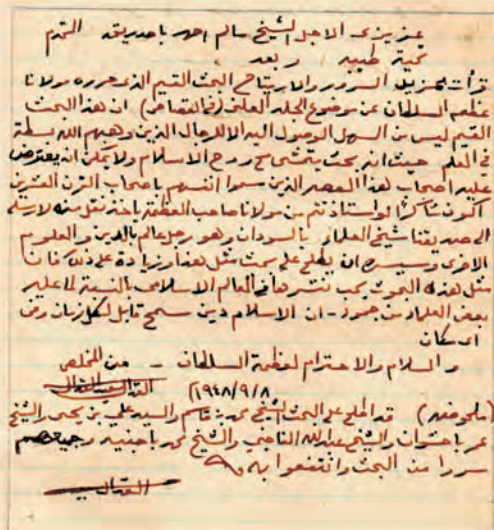 عزيزي الاجل الشيخ سالم احمد باصديق المحترم
تحية طيبة وبعد
قرأت بمزيد السرور والارتياح البحث القيم الذى حرره مولانا
عظمة السلطان عن موضوع الجلد العلني (في القصاص) ان هذا البحث
القيم ليس من السهل الوصول اليه الا للرجال الذين وهبهم الله بسطة
في العلم حيث انه بحث يتمشى مع روح الاسلام ولا يمكن ان يعترض
عليه اصحاب هذا العصر الذين سموا انفسهم باصحاب القرن العشرين
اكون شاكرًا لو استاذنتم من مولانا صاحب العظمة باخذ نقل منه لارسله
الى صديقنا شيخ العلماء بالسودان وهو رجل عالم بالدين والعلوم
الاخرى وسيسره ان يطلع على بحث مثل هذا وزيادة على ذلك فان
مثل هذه البحوث يجب نشرها في العالم الاسلامى بالنسبة لما عليه
بعض العلماء من جمود - ان الاسلام دين سمح قابل لكل زمان وفى
اى مكان
والسلام والاحترام لعظمة السلطان - من المخلص
القدال
٨/٩/١٩٤٨
(ملحوظة) قد اطلع على البحث الشيخ محمد قاسم والسيد علي بن يحيى والشيخ
عمر باحشوان والشيخ عبدالله الناخبي والشيخ محمد باجنيد وجميعهم
سروا من البحث وانتفعوا به
القدال